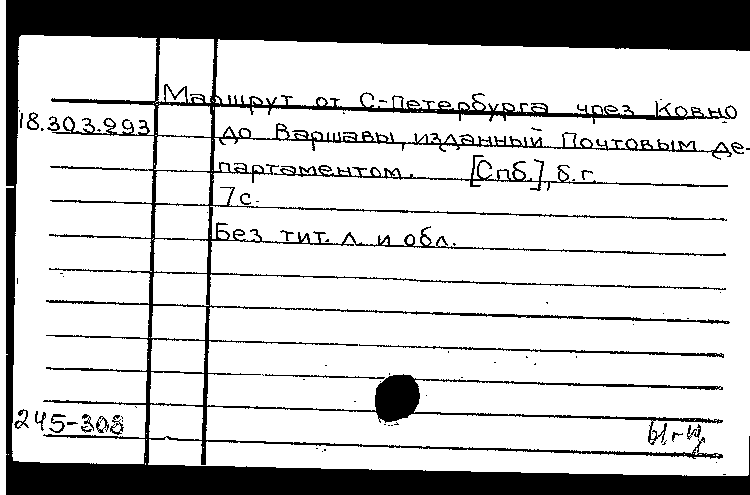 Маршрут от С-Петербурга чрез Ковно
18.303.293 до Варшавы, изданный Почтовым де-
партаментом. [Спб.], б.г.
7с.
Без тит. л. и обл.
245-308